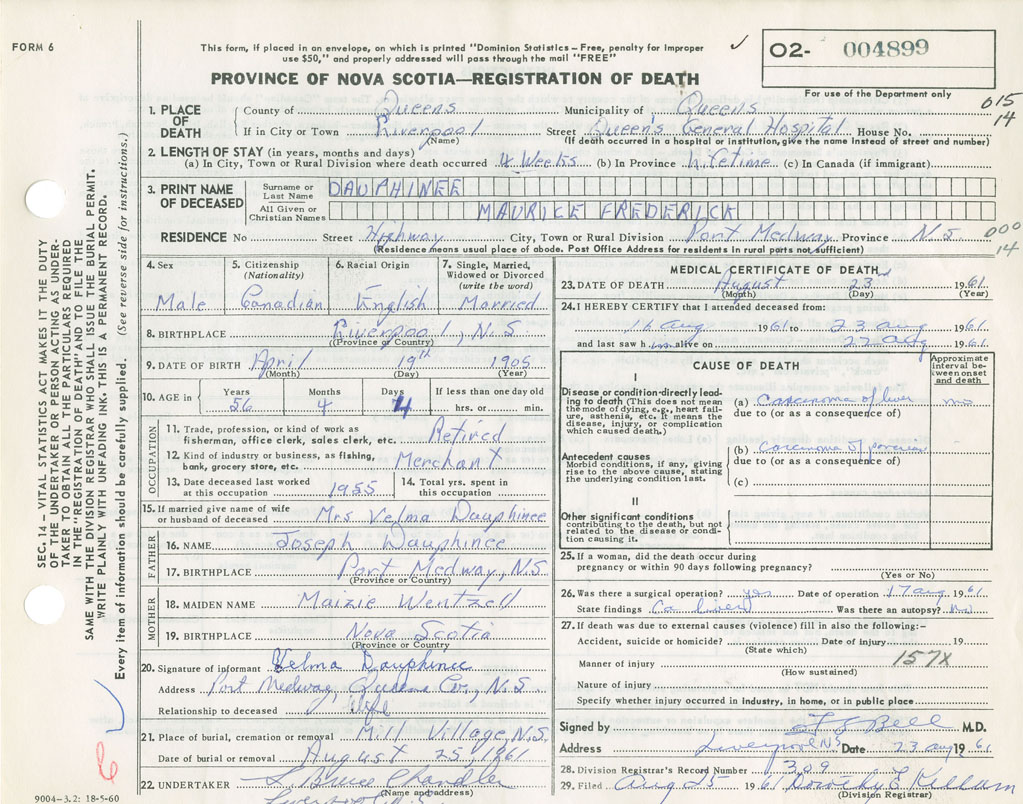 FORM 6
This form, if placed in an envelope, on which is printed "Dominion Statistics – Free, penalty for improper
use $50," and properly addressed will pass through the mail "FREE"
✓
O2- 004899
For use of the Department only
PROVINCE OF NOVA SCOTIA—REGISTRATION OF DEATH
015
14
1. PLACE OF DEATH
County of Queens Municipality of Queens
If in City or Town Liverpool (Name) Street Queen's General Hospital House No.
(If death occurred in a hospital or institution, give the name instead of street and number)
2. LENGTH OF STAY (in years, months and days)
(a) In City, Town or Rural Division where death occurred 4 Weeks (b) In Province Lifetime (c) In Canada (if immigrant)
3. PRINT NAME OF DECEASED
Surname or Last Name DAUPHINEE
All Given or Christian Names MAURICE FREDERICK
RESIDENCE No Street Highway City, Town or Rural Division Port Medway Province N.S
(Residence means usual place of abode. Post Office Address for residents in rural parts not sufficient)
000
14
4. Sex Male
5. Citizenship (Nationality) Canadian
6. Racial Origin English
7. Single, Married, Widowed or Divorced (write the word) Married
8. BIRTHPLACE Liverpool, N.S
(Province or Country)
9. DATE OF BIRTH April 19th 1905
(Month) (Day) (Year)
10. AGE in Years 56 Months 4 Days 4 If less than one day old hrs. or min.
OCCUPATION
11. Trade, profession, or kind of work as
fisherman, office clerk, sales clerk, etc. Retired
12. Kind of industry or business, as fishing,
bank, grocery store, etc. Merchant
13. Date deceased last worked
at this occupation 1955
14. Total yrs. spent in
this occupation
15. If married give name of wife
or husband of deceased Mrs Velma Dauphinee
FATHER
16. NAME Joseph Dauphinee
17. BIRTHPLACE Port Medway, N.S
(Province or Country)
MOTHER
18. MAIDEN NAME Maizie Wentzell
19. BIRTHPLACE Nova Scotia
(Province or Country)
20. Signature of informant Velma Dauphinee
Address Port Medway, Queens Co., N.S
Relationship to deceased wife
21. Place of burial, cremation or removal Mill Village, N.S.
Date of burial or removal August 25, 1961
22. UNDERTAKER L. Bruce Chandler
(Name and address)
Liverpool N.S.
9004-3.2: 18-5-60
MEDICAL CERTIFICATE OF DEATH
23. DATE OF DEATH August 23 1961
(Month) (Day) (Year)
24. I HEREBY CERTIFY that I attended deceased from:
16 Aug 1961 to 23 Aug 1961
and last saw him alive on 22 Aug 1961
CAUSE OF DEATH
Approximate interval between onset and death
I
Disease or condition directly leading to death (This does not mean the mode of dying, e.g., heart failure, asthenia, etc. It means the disease, injury, or complication which caused death.)
(a) Carcinoma of liver mo
due to (or as a consequence of)
Antecedent causes
Morbid conditions, if any, giving rise to the above cause, stating the underlying condition last.
(b) carcinoma of pancreas
due to (or as a consequence of)
(c)
II
Other significant conditions
contributing to the death, but not related to the disease or condition causing it.
25. If a woman, did the death occur during
pregnancy or within 90 days following pregnancy?
(Yes or No)
26. Was there a surgical operation? yes Date of operation 17 Aug 1961
State findings Ca liver Was there an autopsy? no
27. If death was due to external causes (violence) fill in also the following:–
Accident, suicide or homicide? Date of injury 19
(State which)
157X
Manner of injury
(How sustained)
Nature of injury
Specify whether injury occurred in industry, in home, or in public place
Signed by Bell M.D.
Address Liverpool NS Date 23 Aug 1961
28. Division Registrar's Record Number 309
29. Filed Aug 25 1961 Dorothy E Kellum
(Division Registrar)
SEC. 14 – VITAL STATISTICS ACT MAKES IT THE DUTY
OF THE UNDERTAKER OR PERSON ACTING AS UNDER-
TAKER TO OBTAIN ALL THE PARTICULARS REQUIRED
IN THE "REGISTRATION OF DEATH" AND TO FILE THE
SAME WITH THE DIVISION REGISTRAR WHO SHALL ISSUE THE BURIAL PERMIT.
WRITE PLAINLY WITH UNFADING INK. THIS IS A PERMANENT RECORD.
Every item of information should be carefully supplied. (See reverse side for instructions.)
6